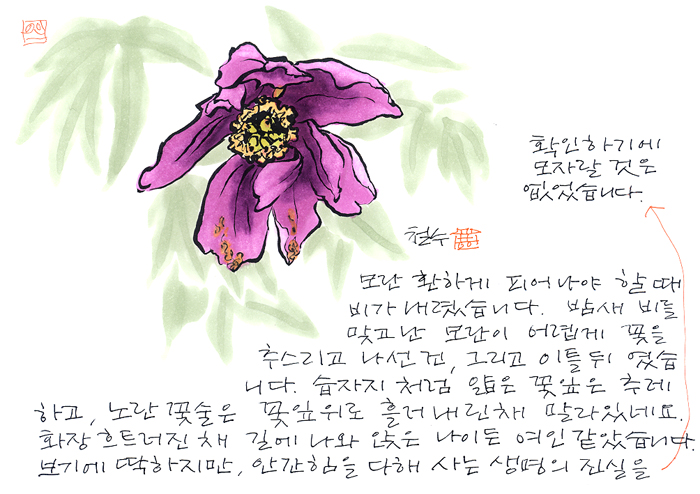 모란 환하게 피어나야 할 때
비가 내렸습니다. 밤새 비를
맞고난 모란이 어렵게 꽃을
추스리고 나선건, 그리고 이틀뒤 였습
니다. 습자지 처럼 얇은 꽃잎은 추레
하고, 노란 꽃술은 꽃잎위로 흘러내린채 말라있네요.
화장 흐트러진 채 길에 나와 앉은 나이든 여인 같았습니다.
보기에 딱하지만, 안간힘을 다해 사는 생명의 진실을
확인하기에
모자랄 것은
없었습니다.
철수